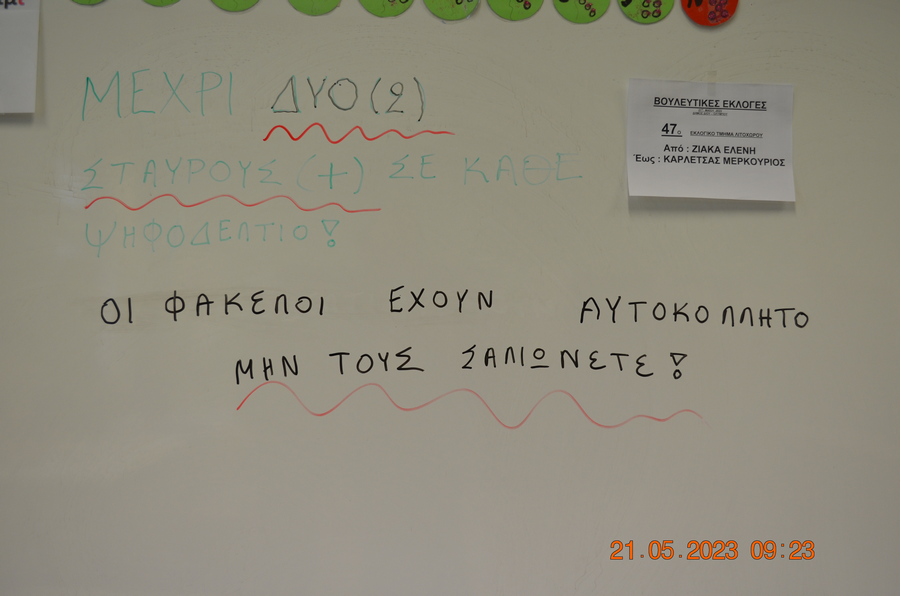 ΜΕΧΡΙ ΔΥΟ (2)
ΣΤΑΥΡΟΥΣ (+) ΣΕ ΚΑΘΕ
ΨΗΦΟΔΕΛΤΙΟ!
ΒΟΥΛΕΥΤΙΚΕΣ ΕΚΛΟΓΕΣ
47ο ΕΚΛΟΓΙΚΟ ΤΜΗΜΑ ΛΙΤΟΧΩΡΟΥ
Από : ΖΙΑΚΑ ΕΛΕΝΗ
Έως : ΚΑΡΛΕΤΣΑΣ ΜΕΡΚΟΥΡΙΟΣ
ΟΙ ΦΑΚΕΛΟΙ ΕΧΟΥΝ ΑΥΤΟΚΟΛΛΗΤΟ
ΜΗΝ ΤΟΥΣ ΣΑΛΙΩΝΕΤΕ!
21.05.2023 09:23